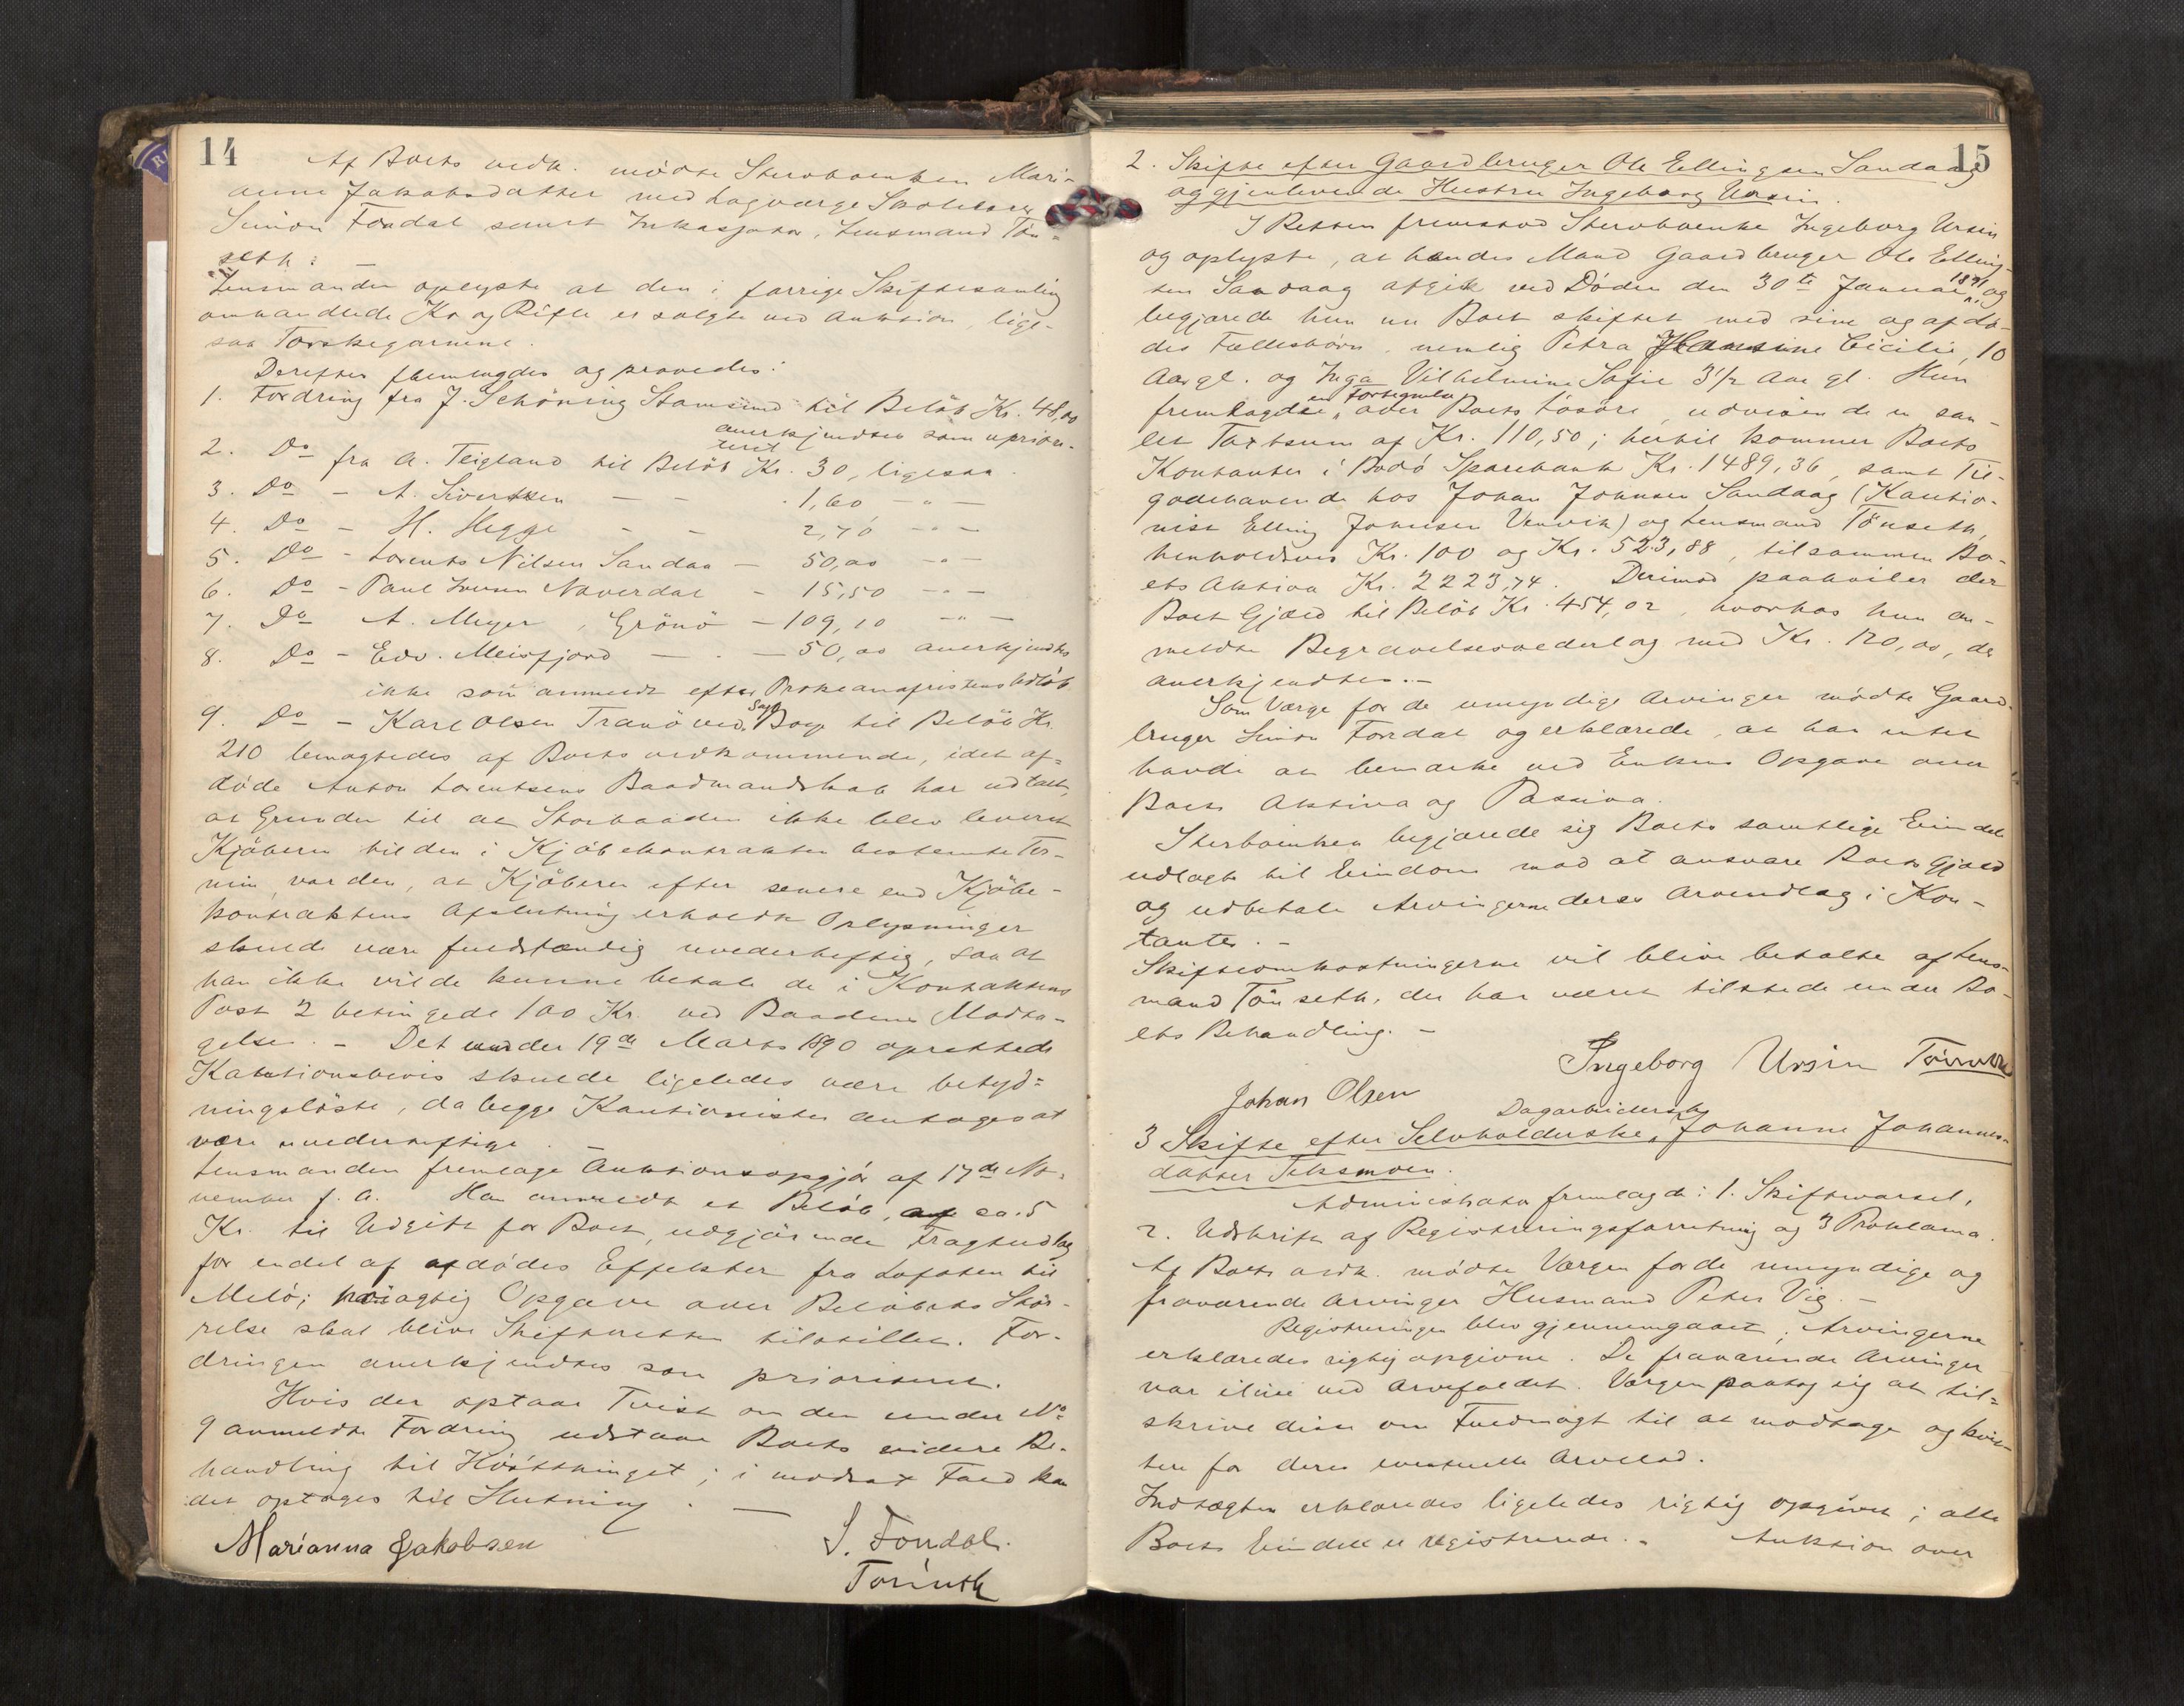 14
Af Boets vedk. mødte Stervboenken Mari-
anne Jakobsdatter med Lagværge Skolelærer
Simon Fondal samt Inkasjator, Lensmand Tön-
seth: —
Lensmanden oplyste at den i forrige Skiftesamling
omhandlede Ko og Rifle er solgte ved Auktion, lige-
saa Torskegarnene.
Derefter fremlagdes og prøvedes:
1. Fordring fra J. Schöning Stamsund til Beløb Kr. 48,00
anerkjendtes som uprior-
teret
2. Do fra A. Teigland til Beløb Kr. 30, ligesaa.
3. Do — A. Sivertsen — — 1,60 — " —
4. Do — H. Hegge — — 2,70 — " —
5. Do — Lorents Nilsen Sandaa — 50,00 — "
6. Do — Paul Naverdal — 15,50 — " —
7. Do A. Meyer, Grönö — 109,10 — " —
8. Do — Edv. Meisfjord — — 50,00 anerkjendtes
ikke som anmeldt efter Proklamafristens Udløb
9. Do — Karl Olsen Tranö ved Sagf. Boye til Beløb Kr.
210 benægtedes af Boets vedkommende, idet af-
døde Anton Lorentsens Baadmandskab har udtalt,
at Grunden til at Storbaaden ikke blev leveret
Kjøberen til den i Kjøbekontrakten bestemte Ter-
min, var den, at Kjøberen efter senere end Kjøbe-
kontraktens Afslutning erholdte Oplysninger
skulde være fuldstændig uvederheftig, saa at
han ikke vilde kunne betale de i Kontraktens
Post 2 betingede 100 Kr. ved Baadens Modta-
gelse. — Det under 19de Marts 1890 oprettede
Kautionsbevis skulde ligeledes være betyd-
ningsløst, da begge Kautionister antages at
være uvederheftige. —
Lensmanden fremlage Auktionsopgjör af 17de No-
vember f. A. Han anmeldte et Beløb, af ca. 5
Kr. til Udgift for Boet, udgjörende Fragtudlæg
for endel af afdødes Effekter fra Lofoten til
Melö; nöiagtig Opgave over Beløbets Stör-
relse skal blive Skifteretten tilstillet. For-
dringen anerkjendtes som prioriteret.
Hvis der opstaar Tvist om den under No
9 anmeldte Fordring udstaar Boets videre Be-
handling til Høsttinget; i modsat Fald kan
det optages til Slutning. —
Marianna Jakobsen S. Fondal.
Tönseth
15
2. Skifte efter Gaardbruger Ole Ellingsen Sandaag
og gjenlevende Hustru Ingeborg Ursin.
I Retten fremstod Stervboenke Ingeborg Ursin
og oplyste, at hendes Mand Gaardbruger Ole Elling-
sen Sandaag afgik ved Døden den 30te Januar 1891, og
begjærede hun nu Boet skiftet med sine og afdø-
des Fællesbørn, nemlig Petra Hansine Cicilie, 10
Aar gl. og Inga Vilhelmine Sofie 3 1/2 Aar gl. Hun
fremlagde en Fortegnelse over Boets Løsøre, udvisende en sam-
let Taxtsum af Kr. 110,50; hertil kommer Boets
Kontanter i Bodø Sparebank Kr. 1489,36, samt Til-
godehavende hos Johan Johnsen Sandaag (Kautio-
nist Elling Johnsen Venvik) og Lensmand Tönseth,
henholdsvis Kr. 100 og Kr. 523,88, tilsammen Bo-
ets Aktiva Kr. 2223,74. Derimod paahviler der
Boet Gjæld til Beløb Kr. 454,02, hvorhos hun an-
meldte Begravelsesvederlag med Kr. 120,00, der
anerkjendtes. —
Som Værge for de umyndige Arvinger mødte Gaard-
bruger Simon Fondal og erklærede, at han intet
havde at bemærke ved Enkens Opgave over
Boets Aktiva og Passiva.
Sterboenken begjærede sig Boets samtlige Eiendele
udlagt til Eiendom mod at ansvare Boets Gjæld
og udbetale Arvingerne deres Arveudlæg i Kon-
tanter. —
Skifteomkostningerne vil blive betalte af Lens-
mand Tönseth, der har været tilstede under Bo-
ets Behandling. —
Ingeborg Ursin Tönseth
Johan Olsen
Dagarbeiderske
3 Skifte efter Selvholderske, Johanne Johannes-
datter Teksmoen.
Administrator fremlagde: 1. Skiftevarsel,
2. Udskrift af Registreringsforretning og 3 Proklama.
Af Boets vedk. mødte Værgen for de umyndige og
fraværende Arvinger Husmand Peter Vig. —
Registreringen blev gjennemgaaet; Arvingerne
erklæredes rigtig opgivne. De fraværende Arvinger
var ilive ved Arvefaldet. Værgen paatog sig at til-
skrive disse om Fuldmagt til at modtage og kvit-
tere for deres eventuelle Arvelod.
Indtægten erklæredes ligeledes rigtig opgivet; alle
Boets Eiendele er registrerede. — Auktion over